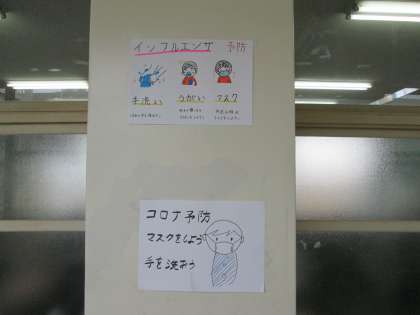 インフルエンザ 予防
手洗い うがい マスク
コロナ予防
マスクをしよう
手を洗おう